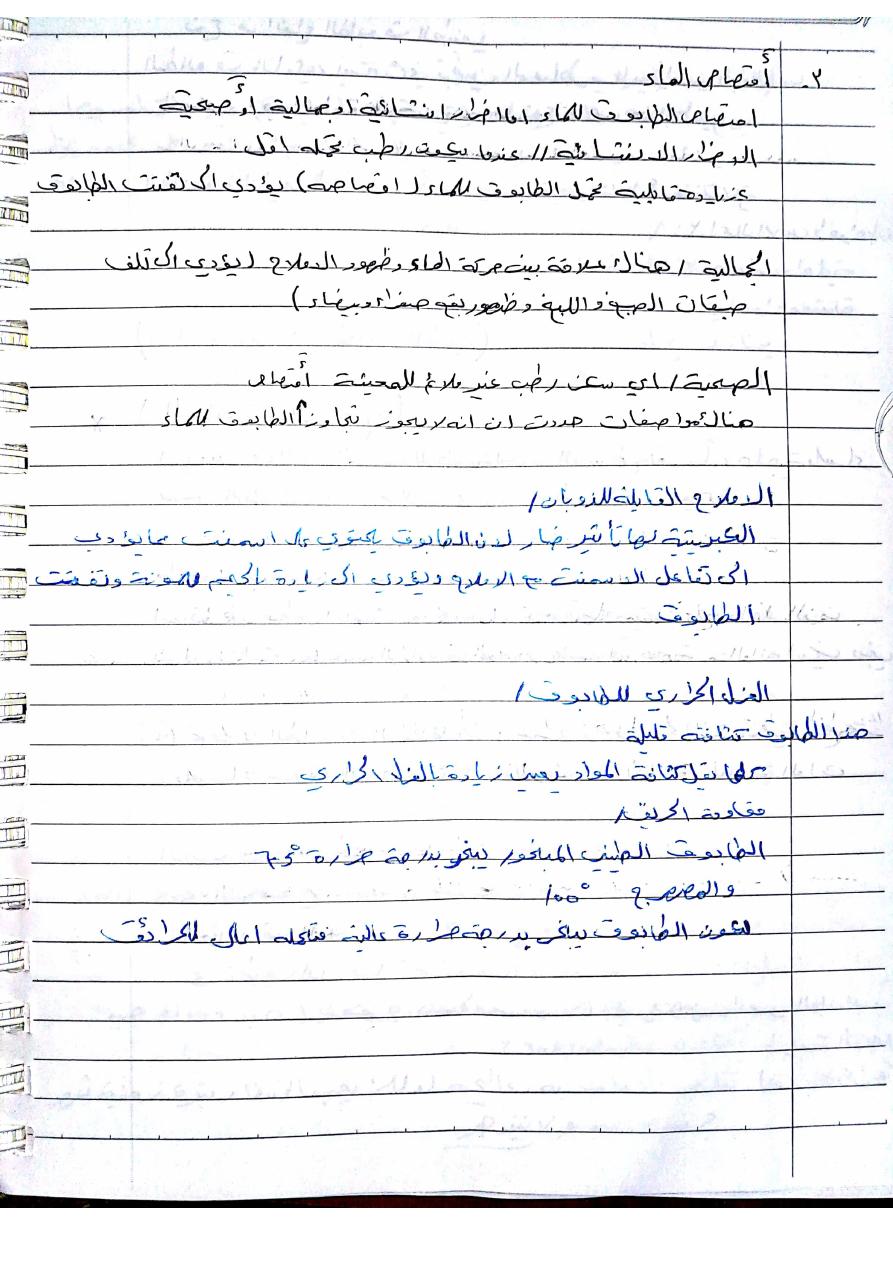 ٢. أمتصاص الماء
امتصاص الطابوق للماء اما اضرار انشائية او جمالية أو صحية
الاضرار الانشائية // عندما يكون رطب تحمله اقل :
عزيادة قابلية تحمل الطابوق للماء ( امتصاصه ) يؤدي الى تفتت الطابوق
الجمالية / هناك علاقة بين حركة الماء وظهور الاملاح ( يؤدي الى تلف
طبقات الصبغ واللبخ وظهور بقع صفراء وبيضاء )
الصحية / اي سكن رطب غير ملائم للمعيشة أمتصاص
هناك مواصفات حددت ان انه لا يجوز تجاوز الطابوق للماء
الاملاح القابلة للذوبان /
الكبريتية لها تأثير ضار لان الطابوق يحتوي على اسمنت مما يؤدي
الى تفاعل الاسمنت مع الاملاح ويؤدي الى زيادة بالحجم للمونة وتفتت
الطابوق
العزل الحراري للطابوق /
هذا الطابوق كثافته قليلة
كلما تقل كثافة المواد يعني زيادة بالعزل الحراري
مقاومة الحريق /
الطابوق الطيني المفخور يفخر بدرجة حرارة
والمصرج °١٠٠
لكون الطابوق يفخر بدرجة حرارة عالية فتحمله اعلى للحرائق